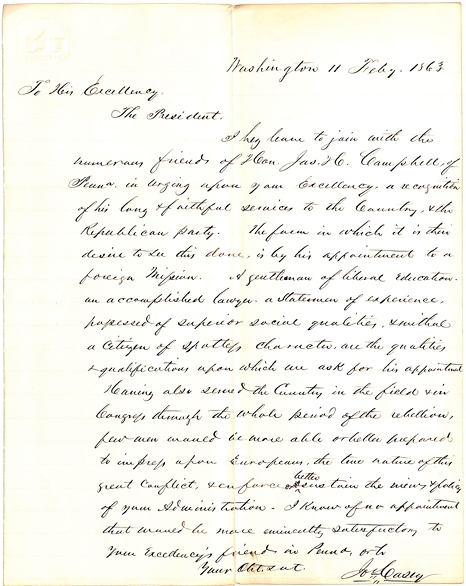 Washington 11 Feby. 1863
To His Excellency.
The President.
I beg leave to join with the
numerous friends of Hon. Jas. H. Campbell, of
Penna. in urging upon your Excellency, a recognition
of his long & faithful services to the Country, & the
Republican party. The form in which it is their
desire to see this done, is by his appointment to a
foreign Mission. A gentleman of liberal Education.
an accomplished lawyer. a Statesman of experience,
possessed of superior social qualities, & withal
a Citizen of spotless character are the qualities
& qualifications upon which we ask for his appointment
Having also served the Country in the field & in
Congress through the whole period of the rebellion,
few men would be more able or better prepared
to impress upon Europeans, the true nature of this
great Conflict, & enforce & better sustain the views & policy
of your Administration. I know of no appointment
that would be more eminently satisfactory to
your Excellency's friends in Penna,
Your Obt. Svt.
Jos. Casey